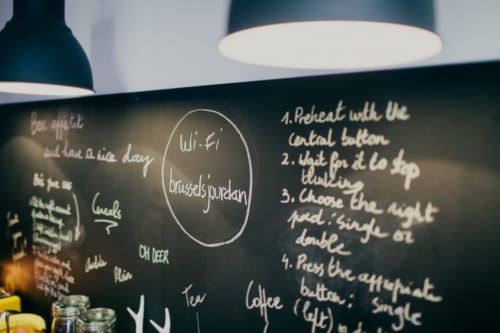 Bon appétit
and have a nice day
Wi-Fi
brusselsjourdan
1. Preheat with the
central button
2. Wait for it to stop
blinking
3. Choose the right
pad: single or
double
4. Press the appropriate
button: single
(left)
Cereals
OH DEER
Plain
Tea
Coffee